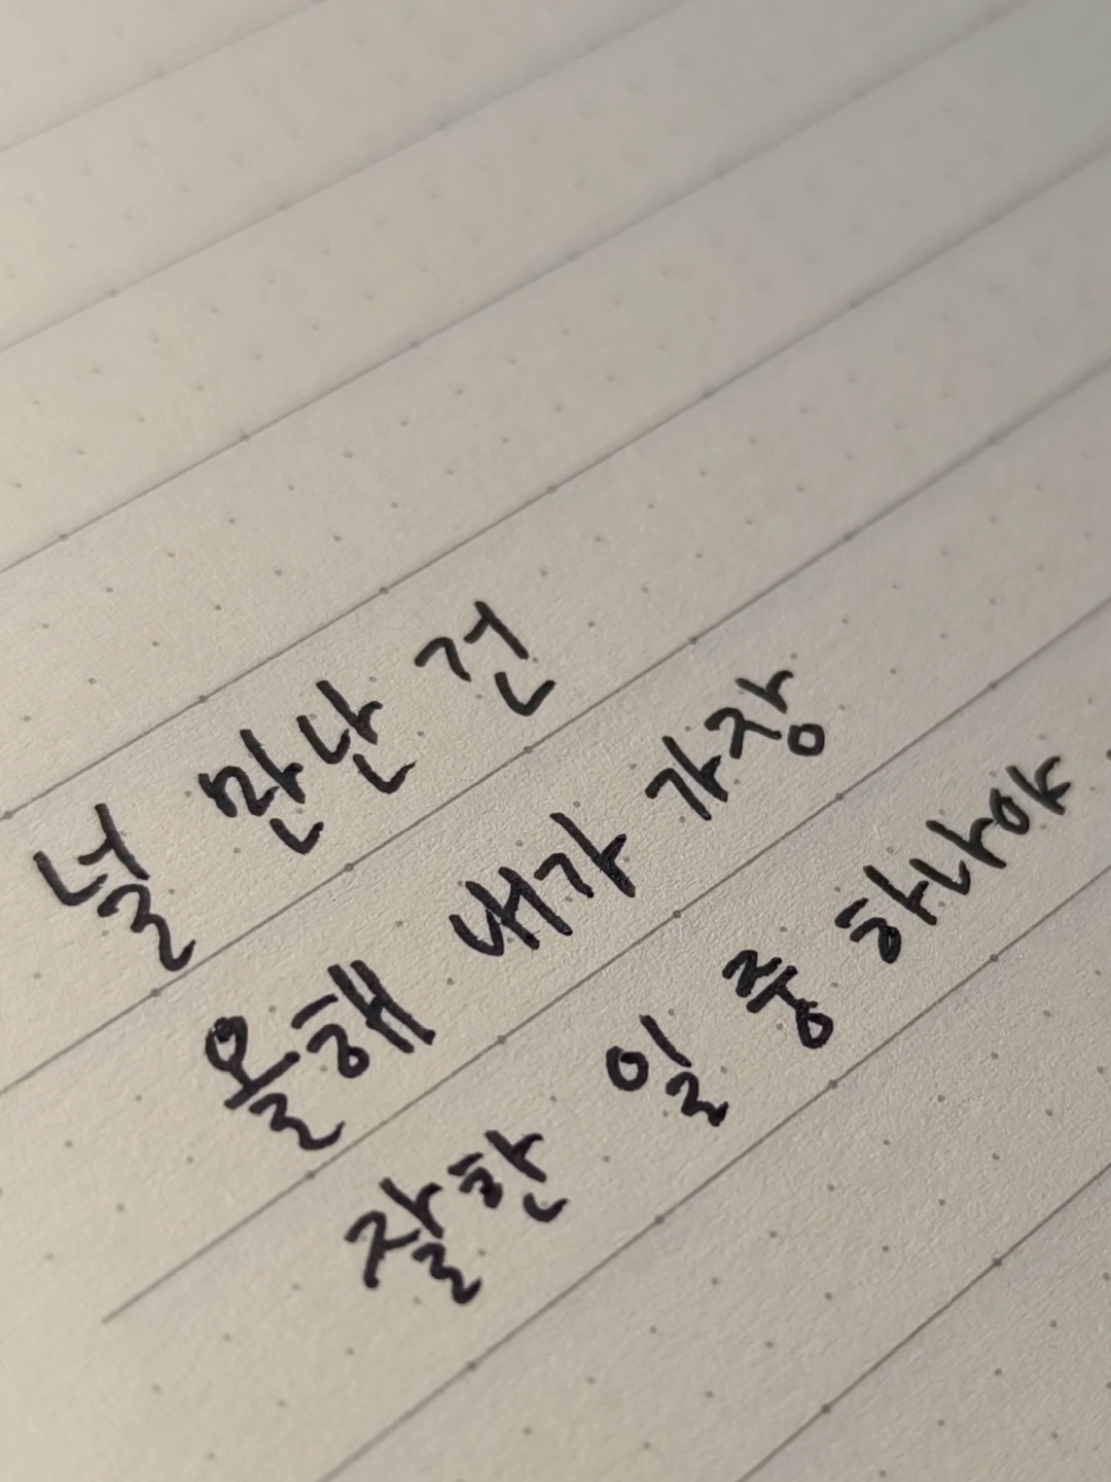 널 만난 건
올해 내가 가장
잘한 일 중 하나야